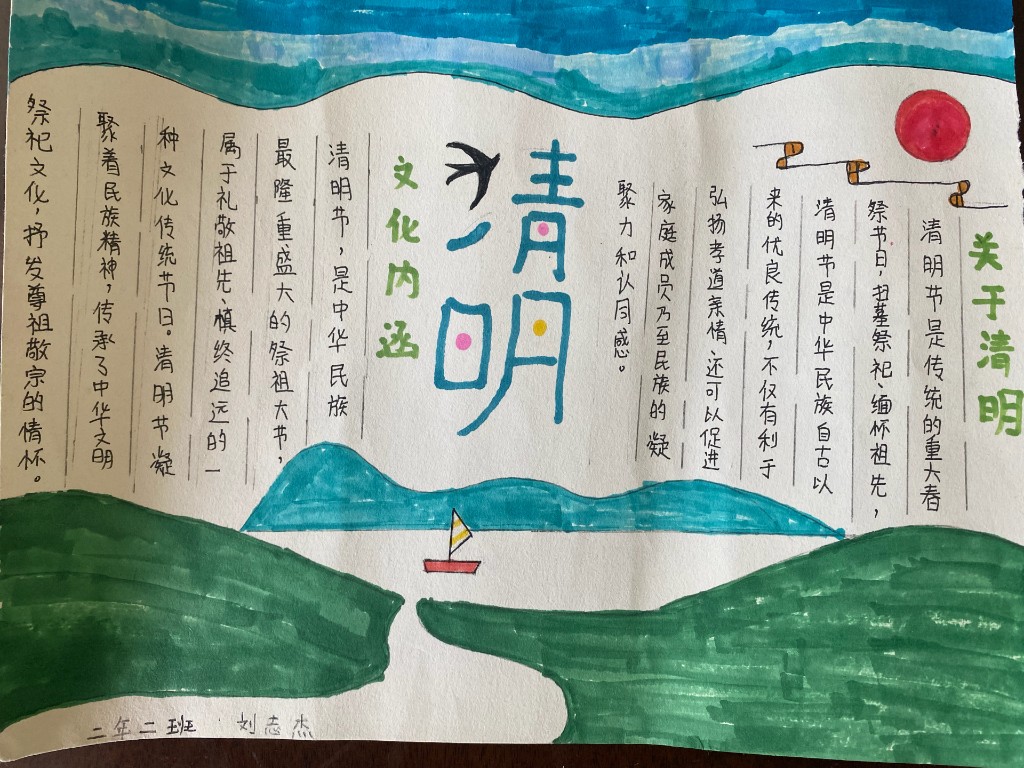 关于清明
清明节是传统的重大春
祭节日，扫墓祭祀、缅怀祖先，
清明节是中华民族自古以
来的优良传统，不仅有利于
弘扬孝道亲情、还可以促进
家庭成员乃至民族的凝
聚力和认同感。
清明
文化内涵
清明节，是中华民族
最隆重盛大的祭祖大节，
属于礼敬祖先、慎终追远的一
种文化传统节日。清明节凝
聚着民族精神，传承了中华文明
祭祀文化，抒发尊祖敬宗的情怀。
二年二班 刘志杰